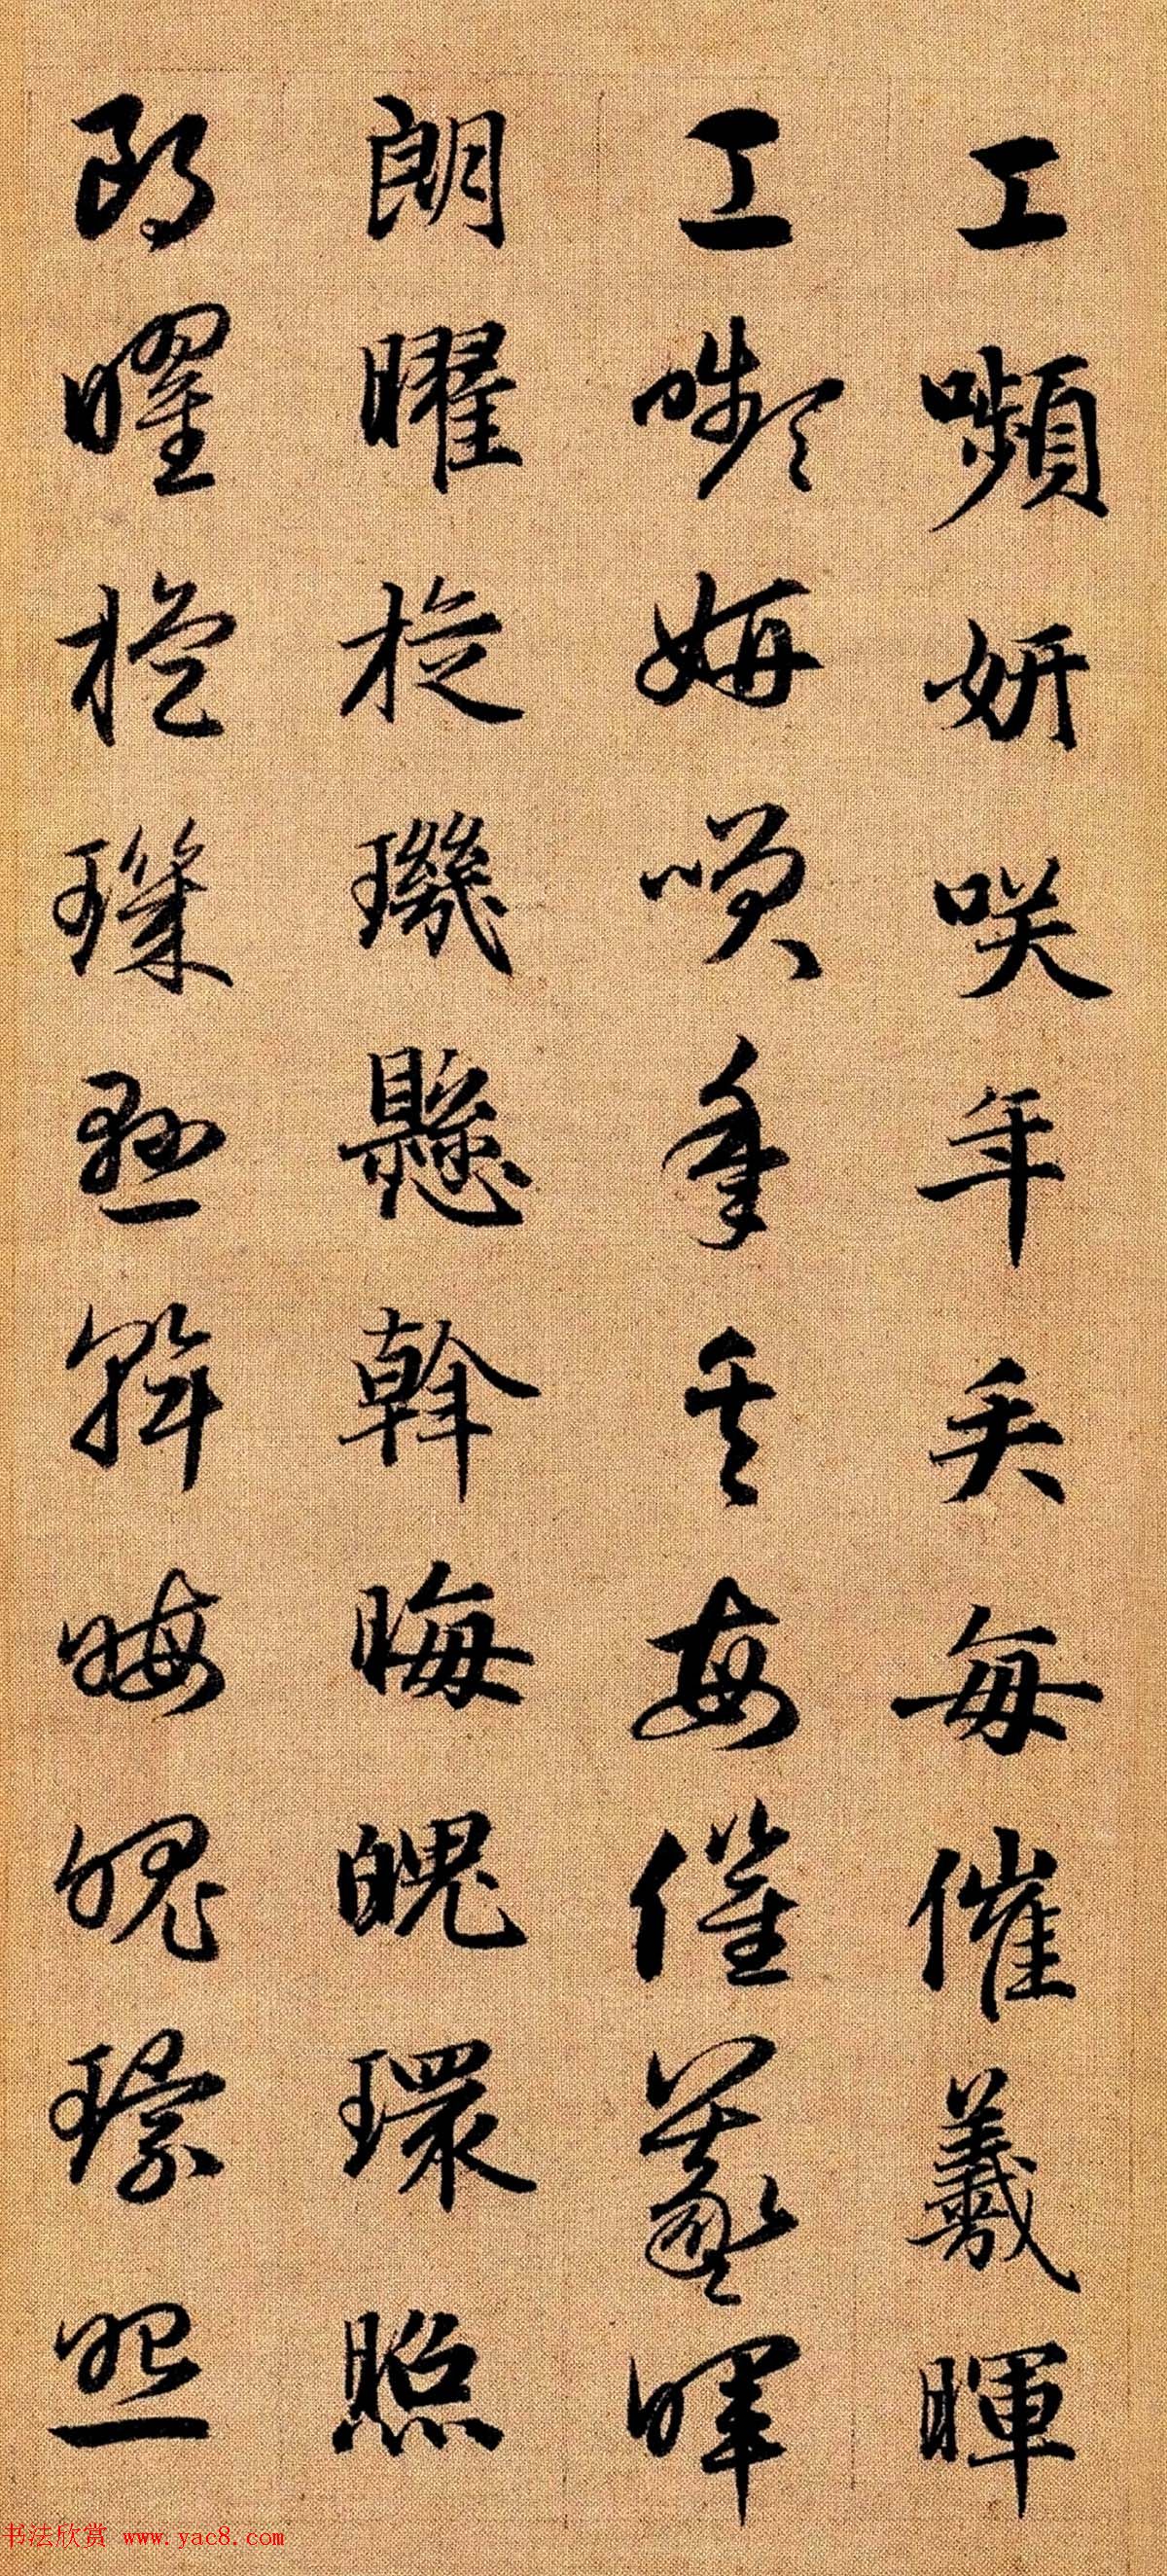 工嚬妍咲年矢每催羲暉
工嚬妍咲年矢每催羲暉
朗曜旋璣懸斡晦魄環照
朗曜旋璣懸斡晦魄環照
书法欣赏 www.yac8.com